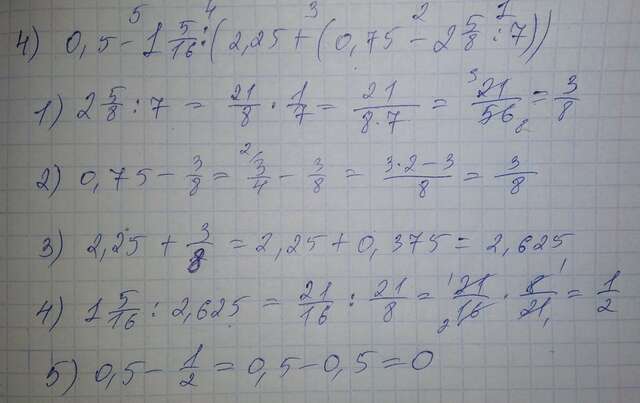 5 4 3 2 1
4) 0,5 - 1 5/16 : (2,25 + (0,75 - 2 5/8 : 7))
1) 2 5/8 : 7 = 21/8 · 1/7 = 21/8·7 = ³21/56₈ = 3/8
2) 0,75 - 3/8 = ²⁾3/4 - 3/8 = 3·2-3/8 = 3/8
3) 2,25 + 3/8 = 2,25 + 0,375 = 2,625
4) 1 5/16 : 2,625 = 21/16 : 21/8 = ¹21/₂16 · 8¹/21₁ = 1/2
5) 0,5 - 1/2 = 0,5 - 0,5 = 0